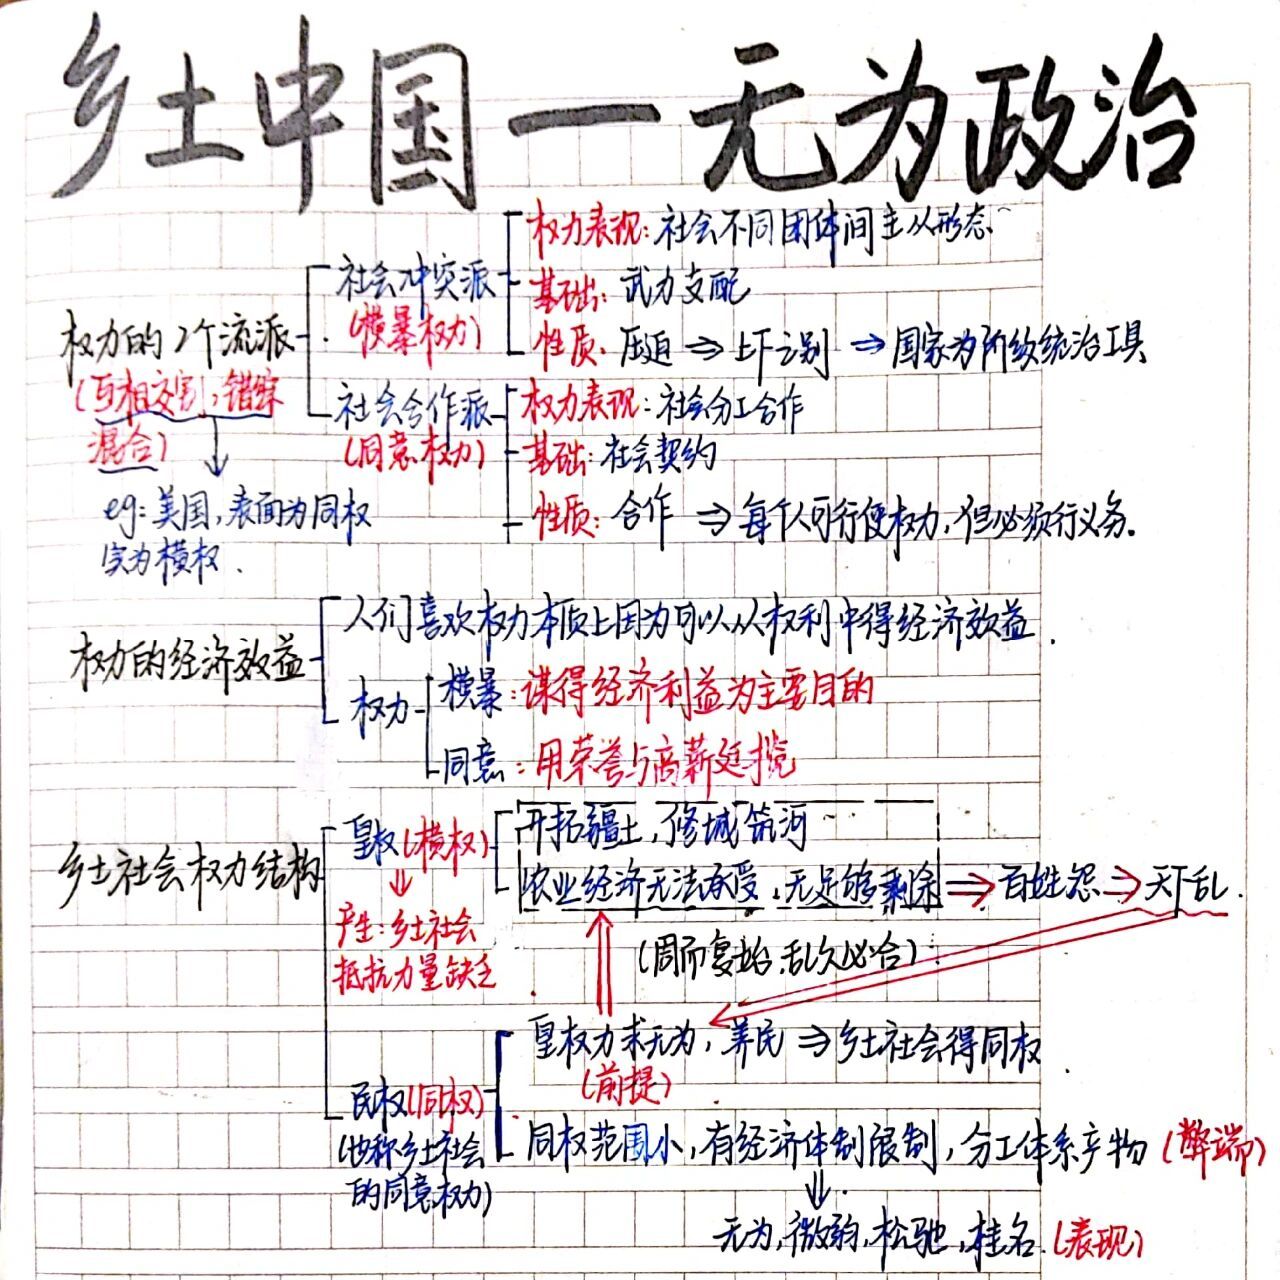 乡土中国—无为政治
权力的2个流派
(互相交割,错综
混合)
eg:美国,表面为同权
实为横权.
社会冲突派
(横暴权力)
权力表现:社会不同团体间主从形态
基础:武力支配
性质:压迫⇒上下之别⇒国家为阶级统治工具
社会合作派
(同意权力)
权力表现:社会分工合作
基础:社会契约
性质:合作⇒每个人可行使权力,但必须行义务.
权力的经济效益
人们喜欢权力本质上因为可以从权利中得经济效益.
权力
横暴:谋得经济利益为主要目的
同意:用荣誉与高薪延揽
乡土社会权力结构
皇权(横权)
⇓
产生:乡土社会
抵抗力量缺乏
开拓疆土,修城筑河
农业经济无法承受,无足够剩余⇒百姓怨⇒天下乱.
(周而复始,乱久必合)
民权(同权)
(也称乡土社会
的同意权力)
皇权力求无为,养民⇒乡土社会得同权
(前提)
同权范围小,有经济体制限制,分工体系产物(弊端)
⇓
无为,微弱,松驰,挂名.(表现)